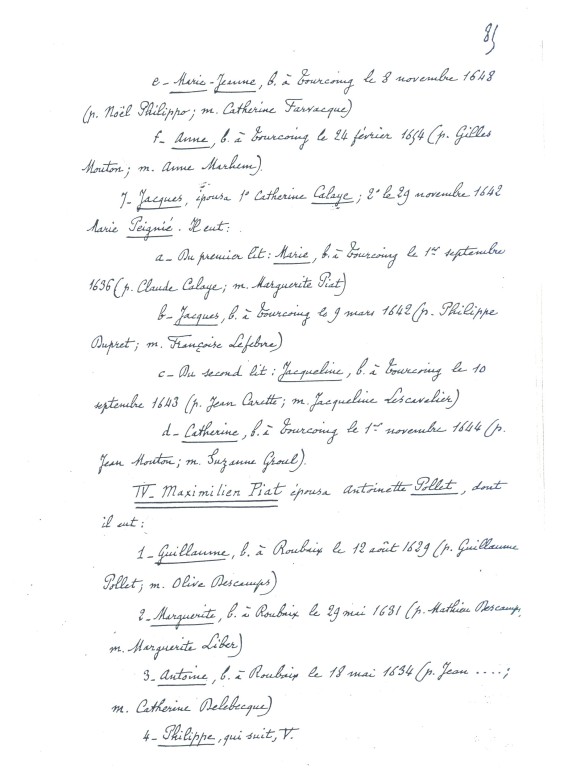 85
e_ Marie-Jeanne, b. à Tourcoing le 8 novembre 1648
(p. Noël Philippo; m. Catherine Farvacque)
f_ Anne, b. à Tourcoing le 24 février 1654 (p. Gilles
Mouton; m. Anne Marhem).
7_ Jacques, épousa 1° Catherine Calaye; 2° le 29 novembre 1642
Marie Peignié. Il eut:
a_ Du premier lit: Marie, b. à Tourcoing le 1er septembre
1636 (p. Claude Calaye; m. Marguerite Piat)
b_ Jacques, b. à Tourcoing le 9 mars 1642 (p. Philippe
Dupret; m. Françoise Lefebvre)
c_ Du second lit: Jacqueline, b. à Tourcoing le 10
septembre 1643 (p. Jean Carette; m. Jacqueline Lescavalier)
d_ Catherine, b. à Tourcoing le 1er novembre 1644 (p.
Jean Mouton; m. Suzanne Groul).
IV_ Maximilien Piat épousa Antoinette Pollet, dont
il eut:
1_ Guillaume, b. à Roubaix le 12 août 1629 (p. Guillaume
Pollet; m. Olive Descamps)
2_ Marguerite, b. à Roubaix le 29 mai 1631 (p. Mathieu Descamp,
m. Marguerite Liber)
3_ Antoine, b. à Roubaix le 18 mai 1634 (p. Jean ....;
m. Catherine Delebecque)
4_ Philippe, qui suit, V.